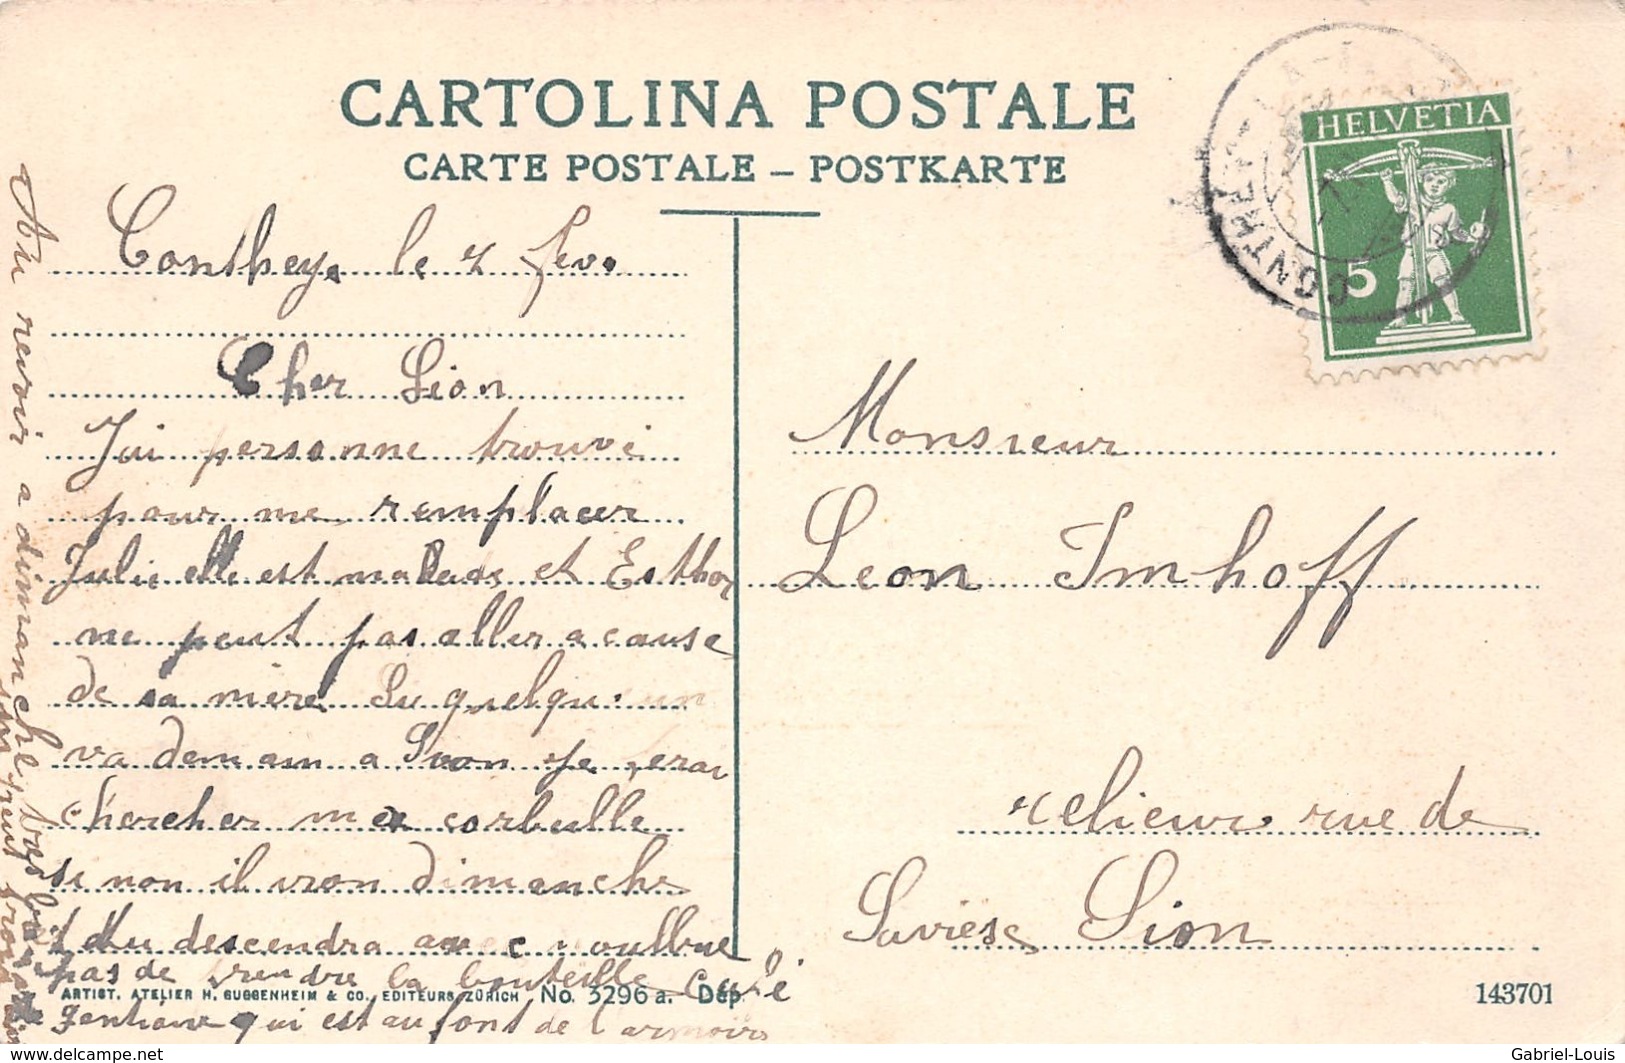 CARTOLINA POSTALE
CARTE POSTALE – POSTKARTE
HELVETIA
5
CONTHEY
Conthey. le 7 fev.
Cher Léon
J'ai personne trouvé
pour me remplacer
Julie elle est malade et Esther
ne peut pas aller a cause
de sa mère Si quelqu'un
va demain a Sion je ferai
chercher ma corbeille
si non il iron dimanche
tu descendra avec
pas de prendre la bouteille
gentiane qui est au font de l'armoire
Au revoir a dimanche
Monsieur
Leon Imhoff
relieur rue de
Savièse Sion
ARTIST. ATELIER H. GUGGENHEIM & CO., EDITEURS, ZÜRICH No. 3296 a. Dép.
143701
delcampe.net
Gabriel-Louis